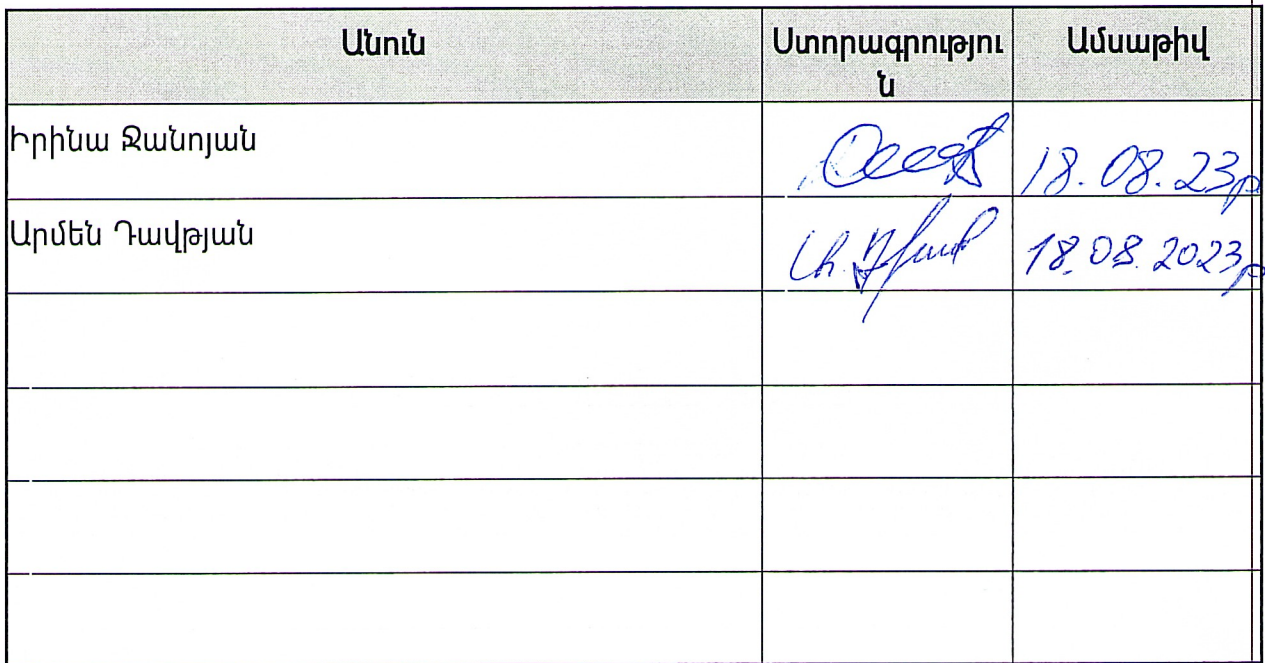 Անուն Ստորագրությու Ամսաթիվ
ն
Իրինա Ջանոյան 18.08.23թ
Արմեն Դավթյան 18.08.2023թ